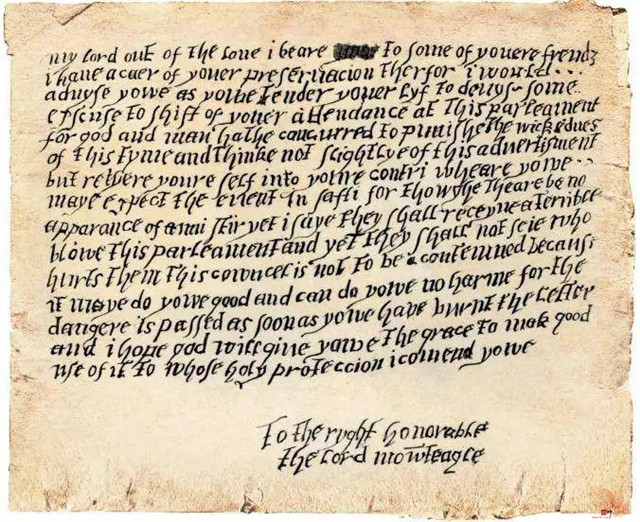 my lord out of the loue i beare to some of youere frends
i haue a caer of youer preseruacion therfor i would ...
aduyse yowe as yowe tender youer lyf to deuyse some
excuse to shift of youer attendance at this parleament
for god and man hathe concurred to punishe the wickednes
of this tyme and thinke not slightlye of this advertisment
but retyere youre self into youre contri wheare yowe ..
maye expect the euent in safti for thowghe theare be no
apparance of anni stir yet i saye they shall receyue a terrible
blowe this parleament and yet they shall not seie who
hurts them this councel is not to be contemned because
it maye do yowe good and can do yowe no harme for the
dangere is passed as soon as yowe have burnt the letter
and i hope god will give yowe the grace to mak good
use of it to whose holy proteccion i comend yowe
To the ryght honorable
the lord mowteagle